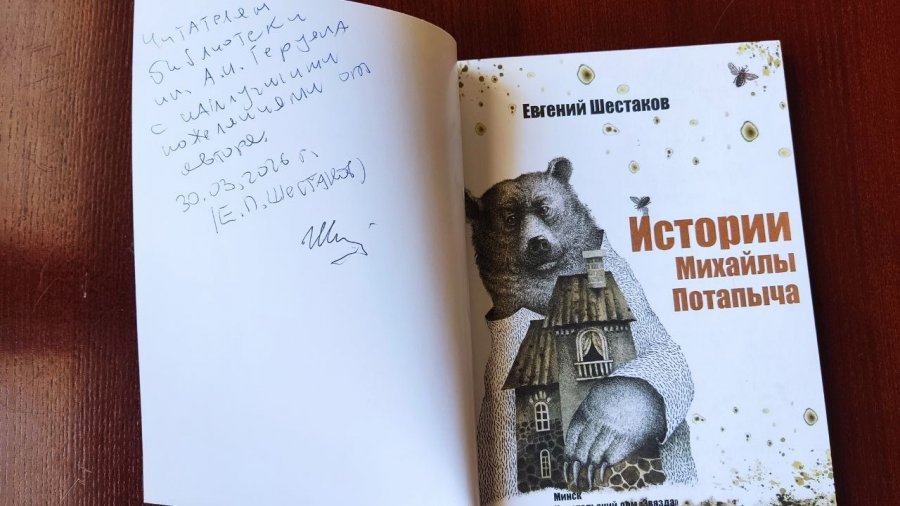 Читателям
библиотеки
им. А.И. Герцена
с наилучшими
пожеланиями от
автора.
30.03.2026 г.
(Е.П. Шестаков)
Евгений Шестаков
Истории
Михайлы
Потапыча
Минск
дом «Звязда»